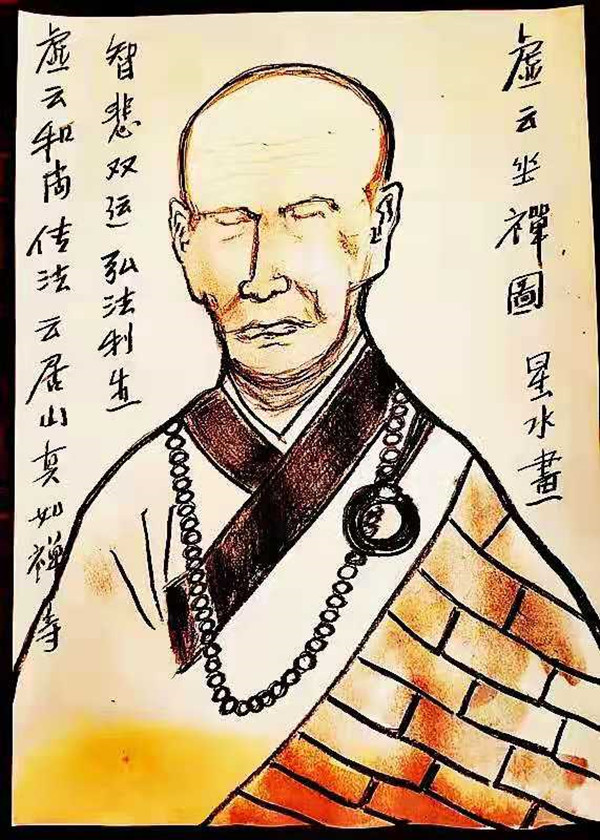 虚云坐禪圖 星水畫
智悲双运弘法利生
虚云和尚传法云居山真如禅寺